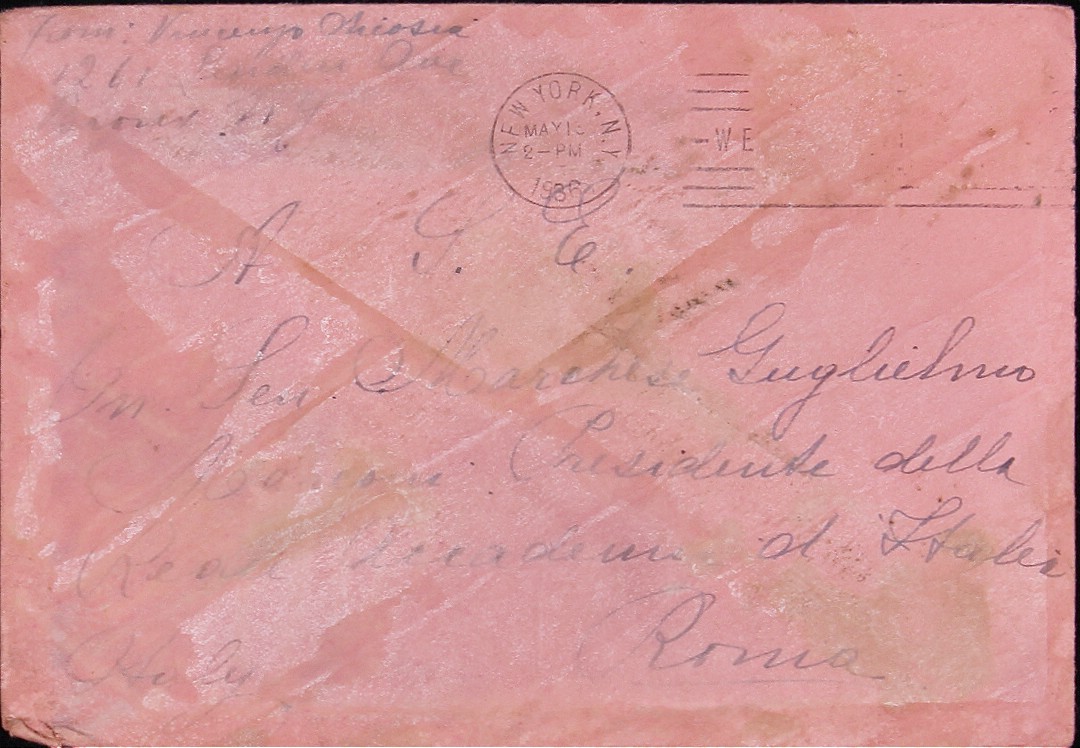 From: Vincenzo
126
N.Y.
NEW YORK, N.Y.
MAY 1
2-PM
1936
WE
A S. E.
On. Sen Marchese Guglielmo
Marconi Presidente della
Reale Accademia d Italia
Roma
Italy